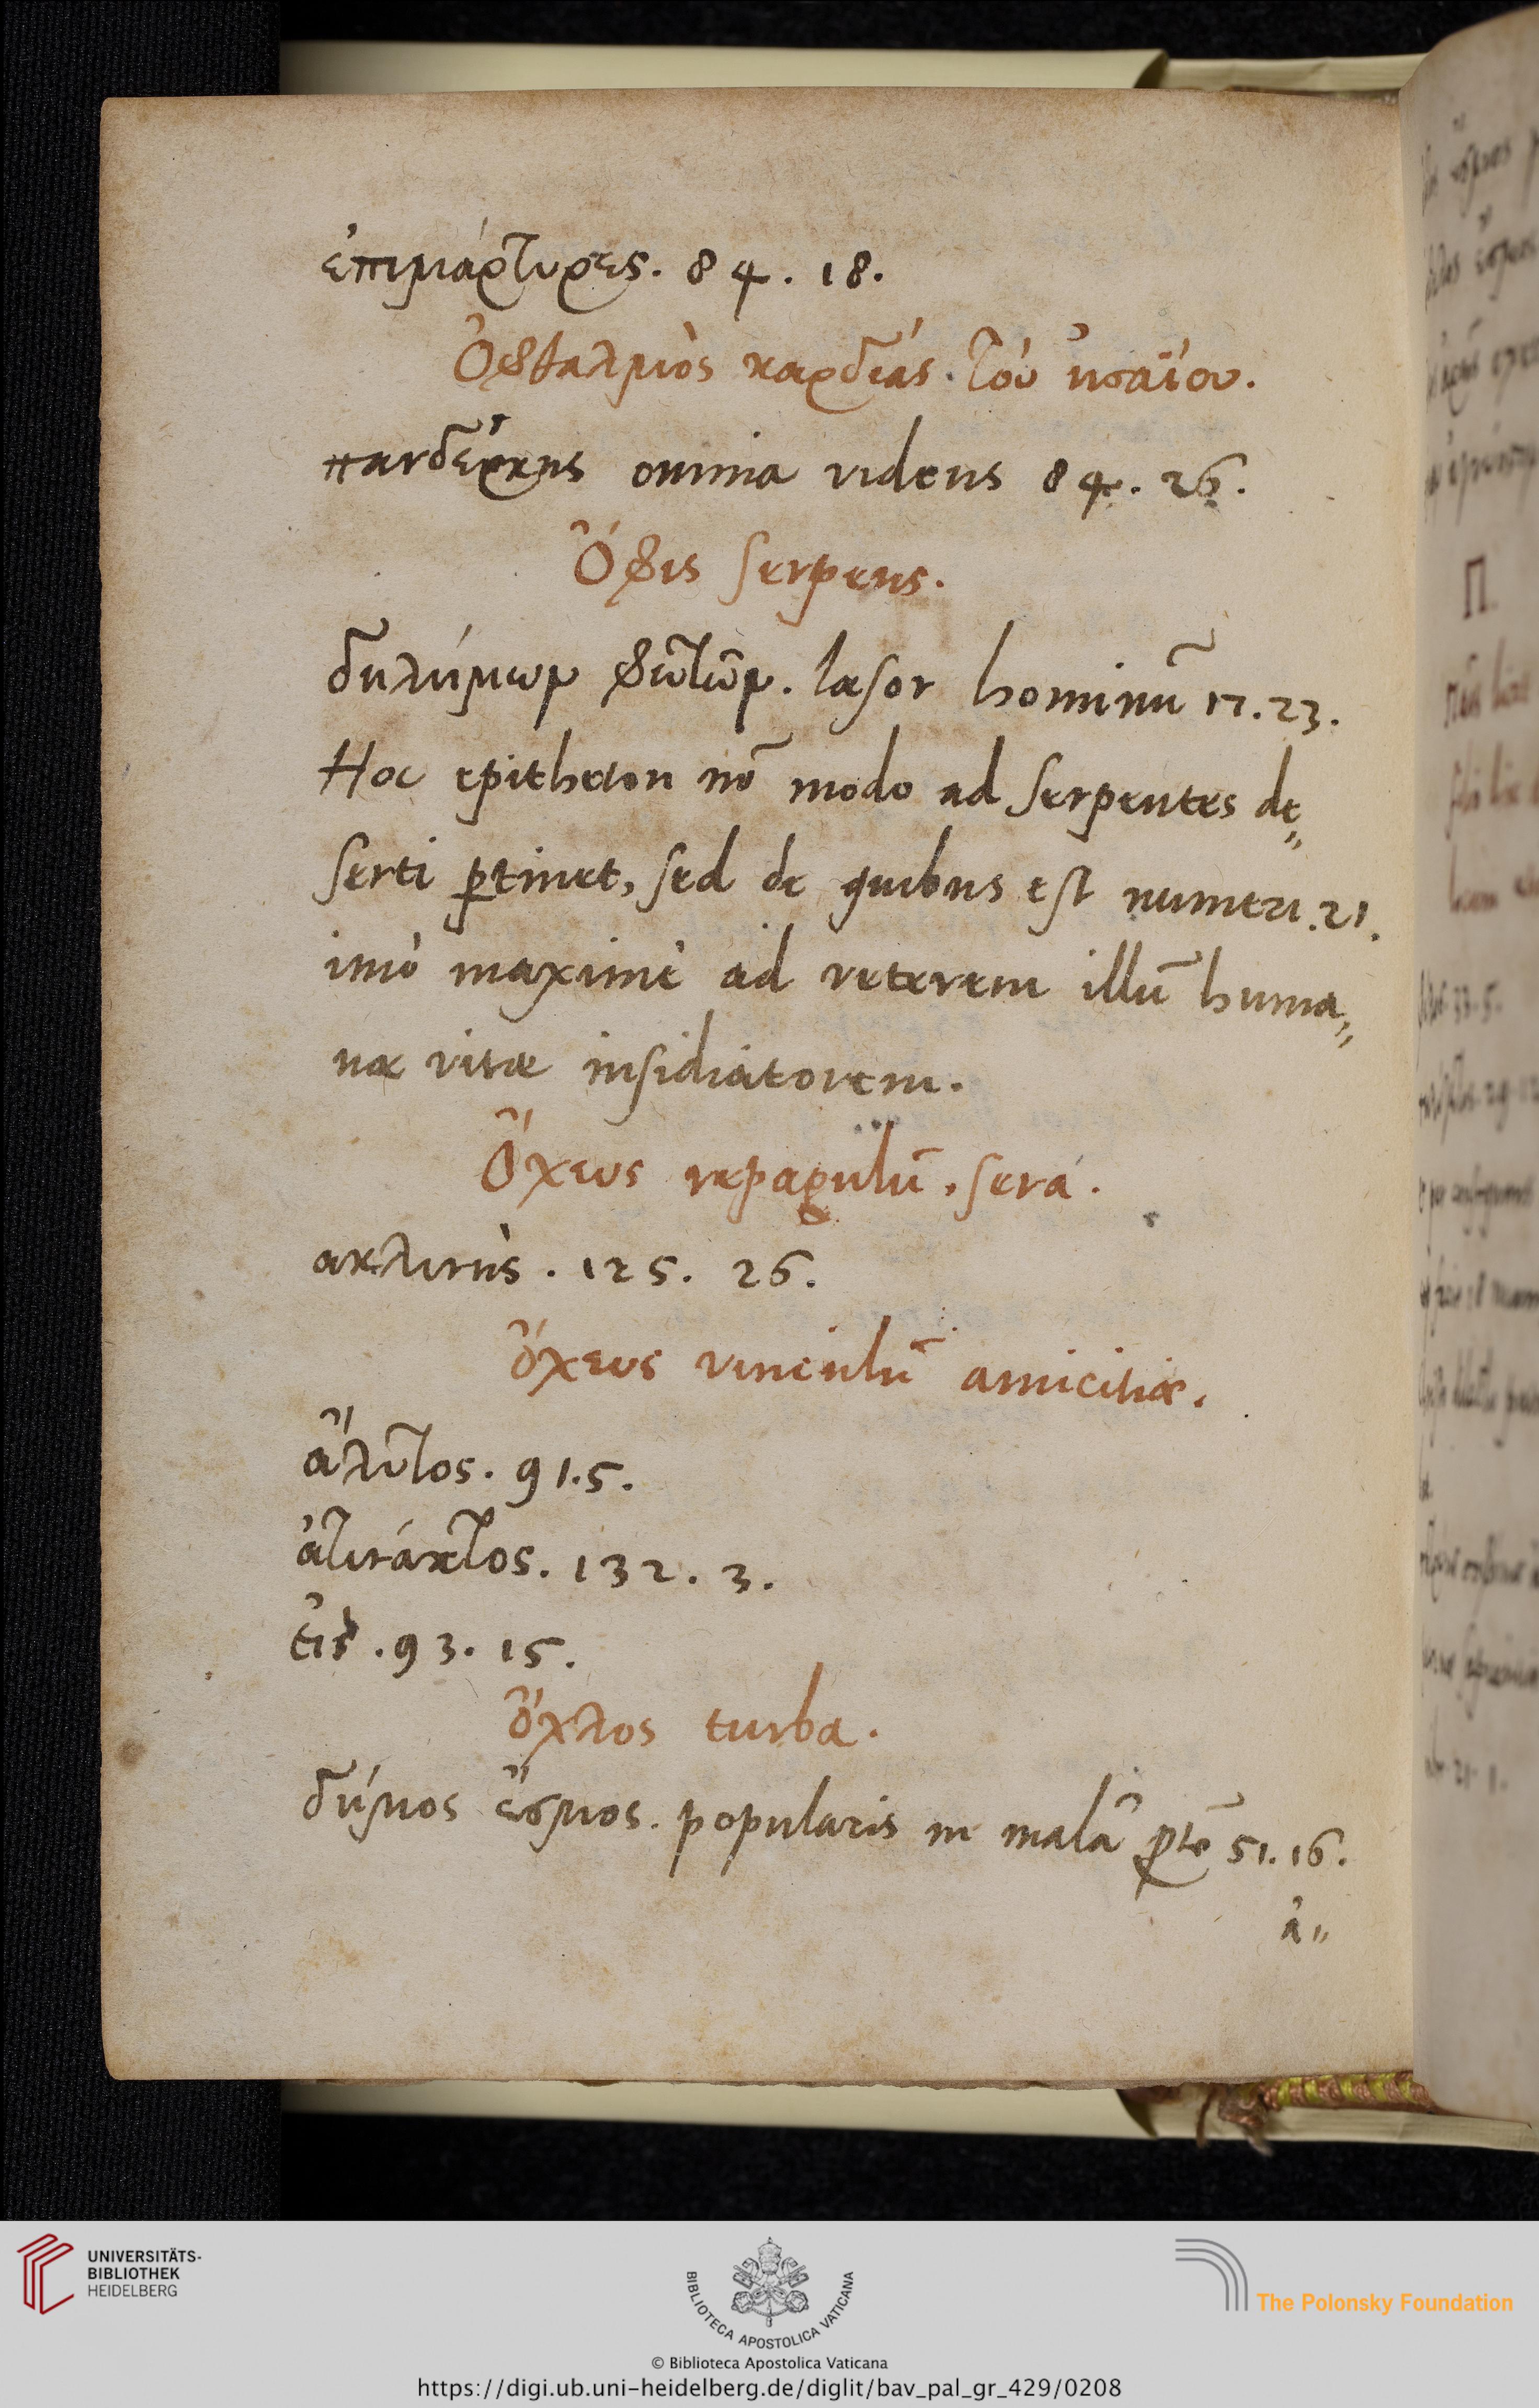 ἐπιμάρτυρες. 84. 18.
Ὀφθαλμὸς καρδίας. τοῦ ἠσαΐου.
πανδέρκης omnia videns 84. 26.
Ὄφις serpens.
δηλήμων φωτῶν. læsor hominū 17. 23.
Hoc epitheton nō modo ad serpentes de„
serti ꝑtinet, sed de quibus est numeri. 21.
imò maximè ad veterem illū huma„
næ vitæ insidiatorem.
Ὄχευς repagulū. sera.
ακλινὴς. 125. 26.
ὄχευς vinculū amicitiæ.
ἄλυτος. 91. 5.
ἀτινάκτος. 132. 3.
93. 15.
ὄχλος turba.
δήμιος ἕσμος. popularis in malā ꝑtē 51. 16.
ἀ„
Π.
UNIVERSITÄTS-
BIBLIOTHEK
HEIDELBERG
BIBLIOTECA APOSTOLICA VATICANA
The Polonsky Foundation
© Biblioteca Apostolica Vaticana
https://digi.ub.uni-heidelberg.de/diglit/bav_pal_gr_429/0208